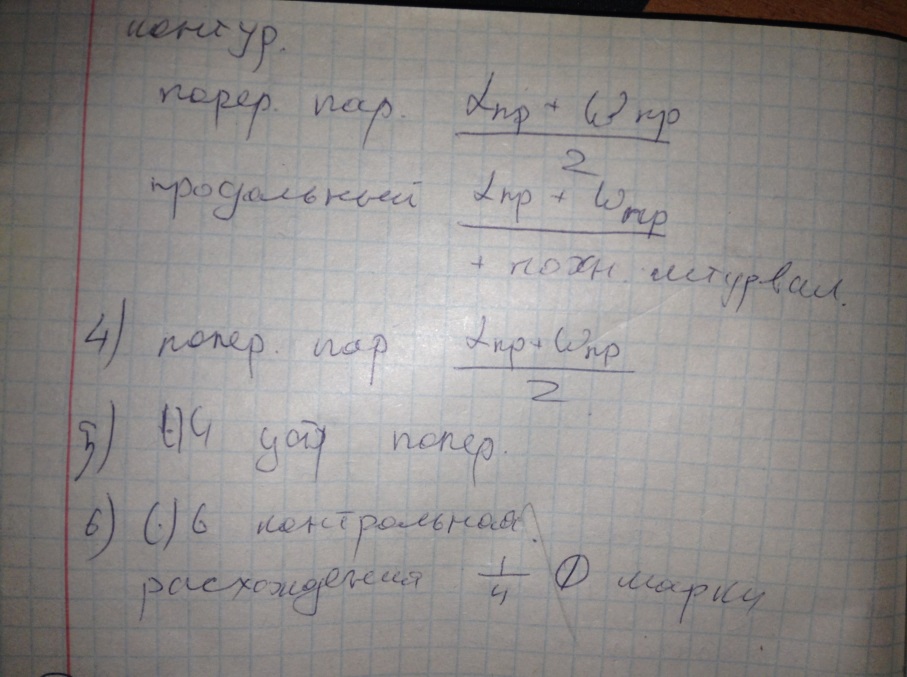 контур.
попер. пар. αпр + ωпр / 2
продольный αпр + ωпр
+ похн. штурвал.
4) попер. пар αпр + ωпр / 2
5) (·)4 попер.
6) (·) 6 контрольная
расхождения 1/4 Ф марки